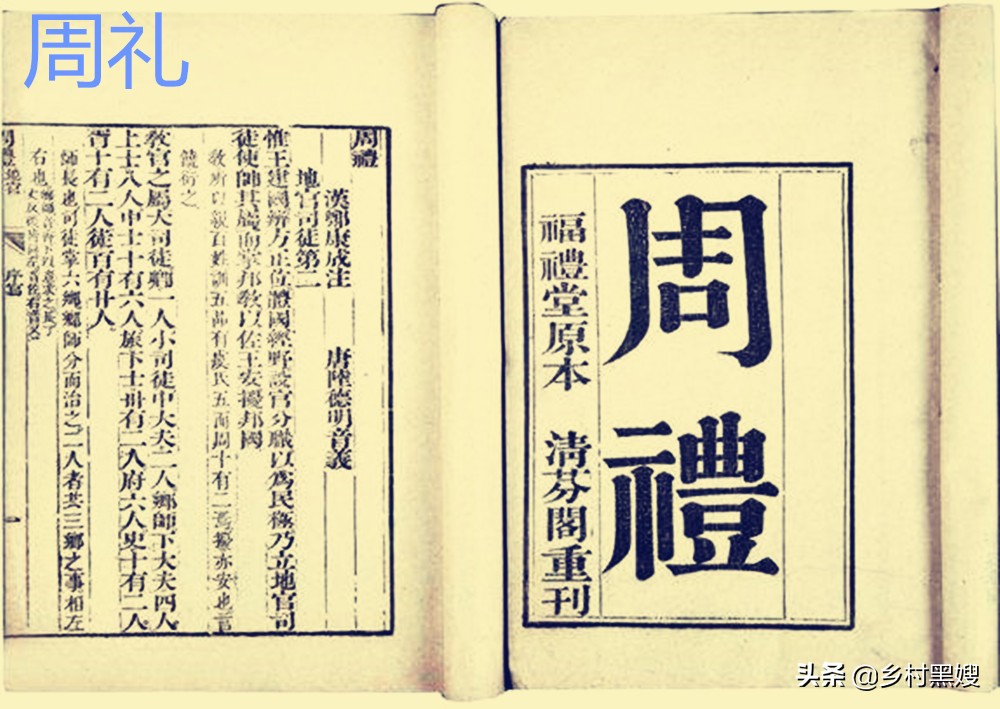 周礼
周禮
福禮堂原本　清芬閣重刊
周禮
漢鄭康成注　唐陸德明音義
地官司徒第二
惟王建國辨方正位體國經野設官分職以為民極乃立地官司
徒使帥其屬而掌邦教以佐王安擾邦國
教所以親百姓訓五品有虞氏五而周十有二焉擾亦安也言
饒衍之
教官之屬大司徒卿一人小司徒中大夫二人鄉師下大夫四人
上士八人中士十有六人旅下士卅有二人府六人史十有二人
胥十有二人徒百有廿人
師長也司徒掌六鄉鄉師分而治之二人者共三鄉之事相左
右也
頭条 @乡村黑嫂